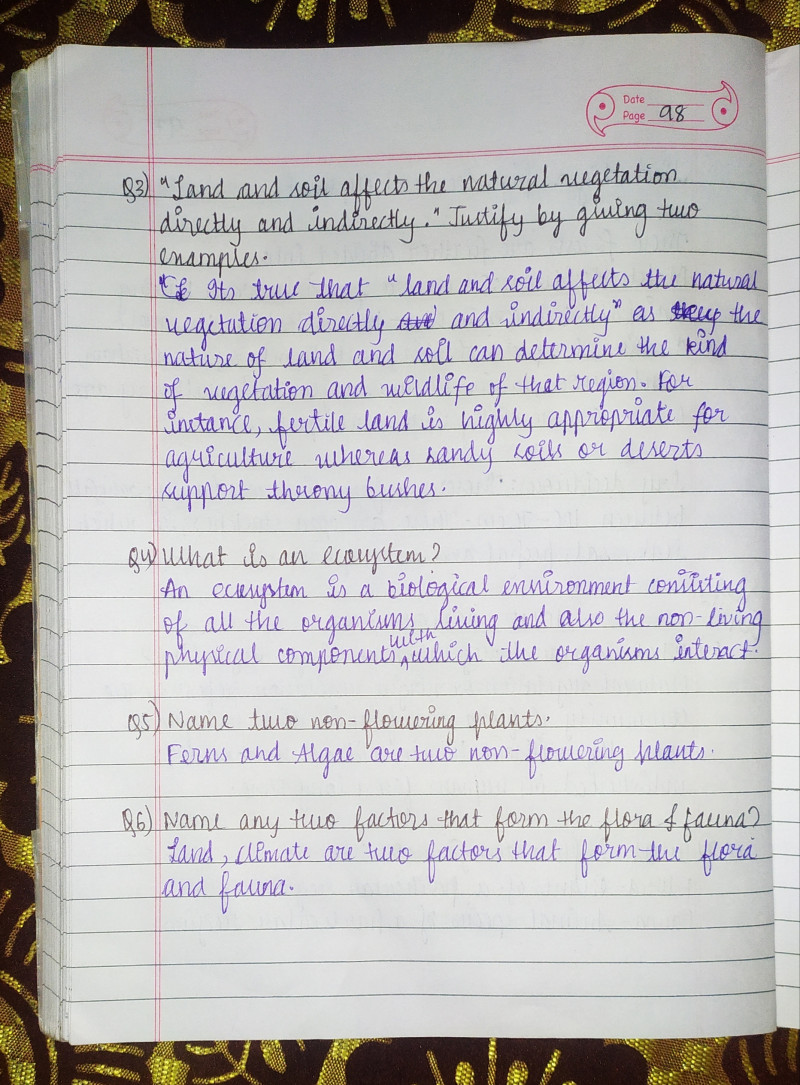 Date
Page 98
Q3) "Land and soil affects the natural vegetation
directly and indirectly." Justify by giving two
examples.
Its true that "land and soil affects the natural
vegetation directly and indirectly" as the
nature of land and soil can determine the kind
of vegetation and wildlife of that region. For
instance, fertile land is highly appropriate for
agriculture whereas sandy soils or deserts
support throny bushes.
Q4) What is an ecosystem?
An ecosystem is a biological environment consisting
of all the organisms living and also the non-living
physical components, with which the organisms interact.
Q5) Name two non-flowering plants.
Ferns and Algae are two non-flowering plants.
Q6) Name any two factors that form the flora & fauna?
Land, climate are two factors that form the flora
and fauna.